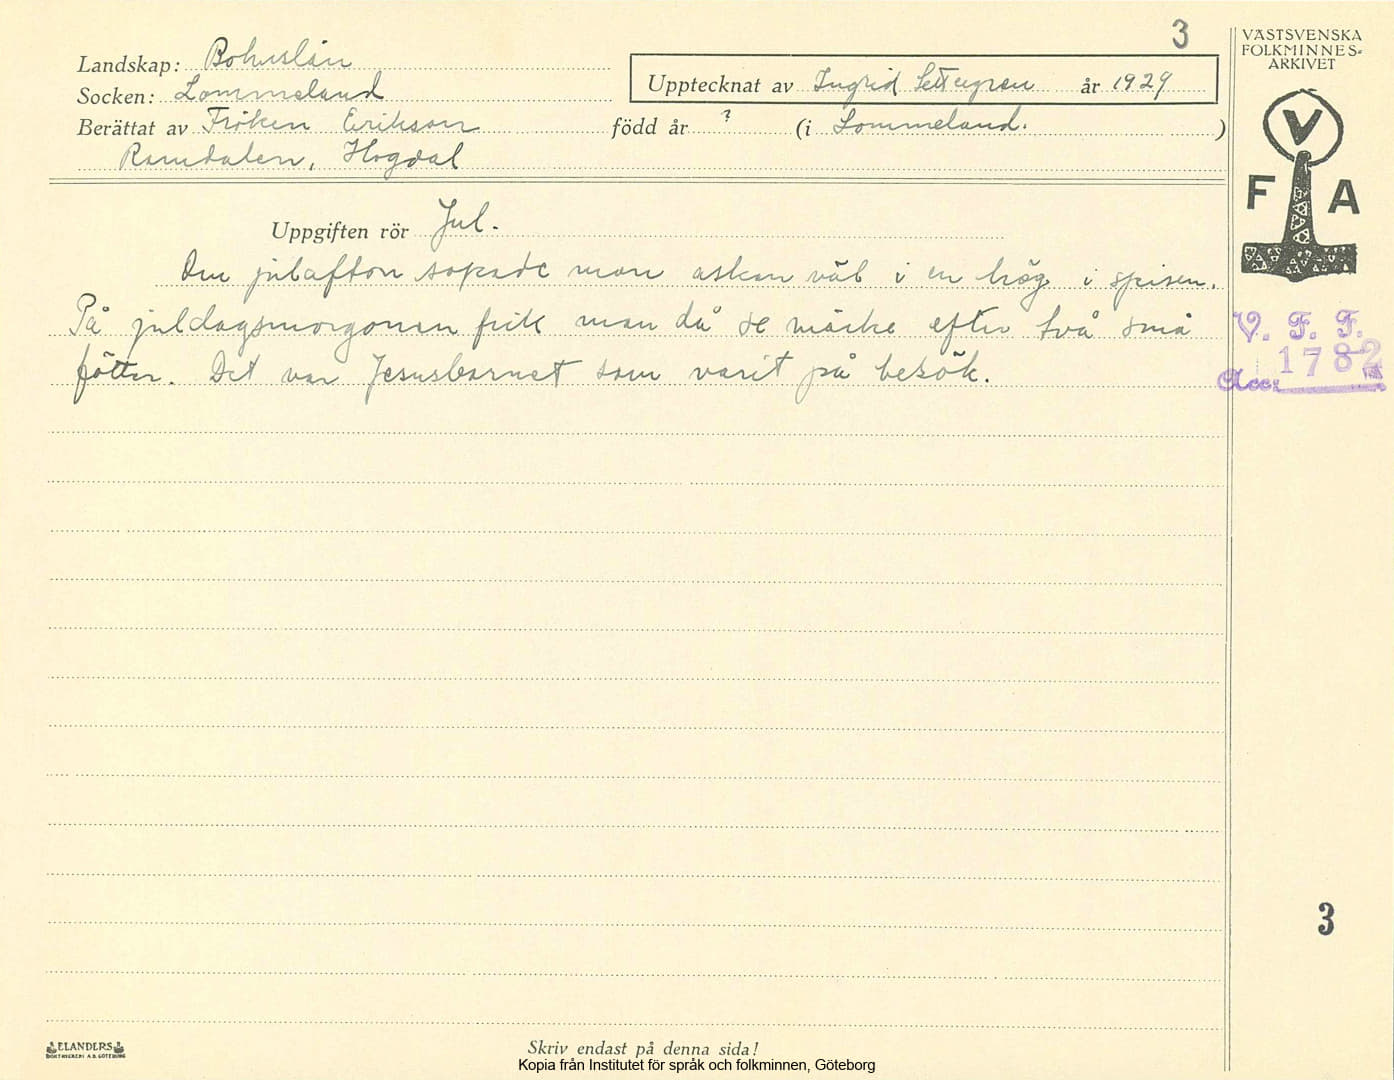 3
VÄSTSVENSKA
FOLKMINNES-
ARKIVET
Landskap: Bohuslän
Socken: Lommeland
Upptecknat av Ingrid Settergren år 1929
Berättat av Fröken Erikson född år ? (i Lommeland. )
Ramdalen, Hogdal
V
F A
Uppgiften rör Jul.
Om julafton sopade man askan väl i en hög i spisen.
På juldagsmorgonen fick man då se märke efter två små
fötter. Det var Jesusbarnet som varit på besök.
V. F. F.
Acc: 1782
3
ELANDERS
BOKTRYCKERI A.B. GÖTEBORG
Skriv endast på denna sida!
Kopia från Institutet för språk och folkminnen, Göteborg